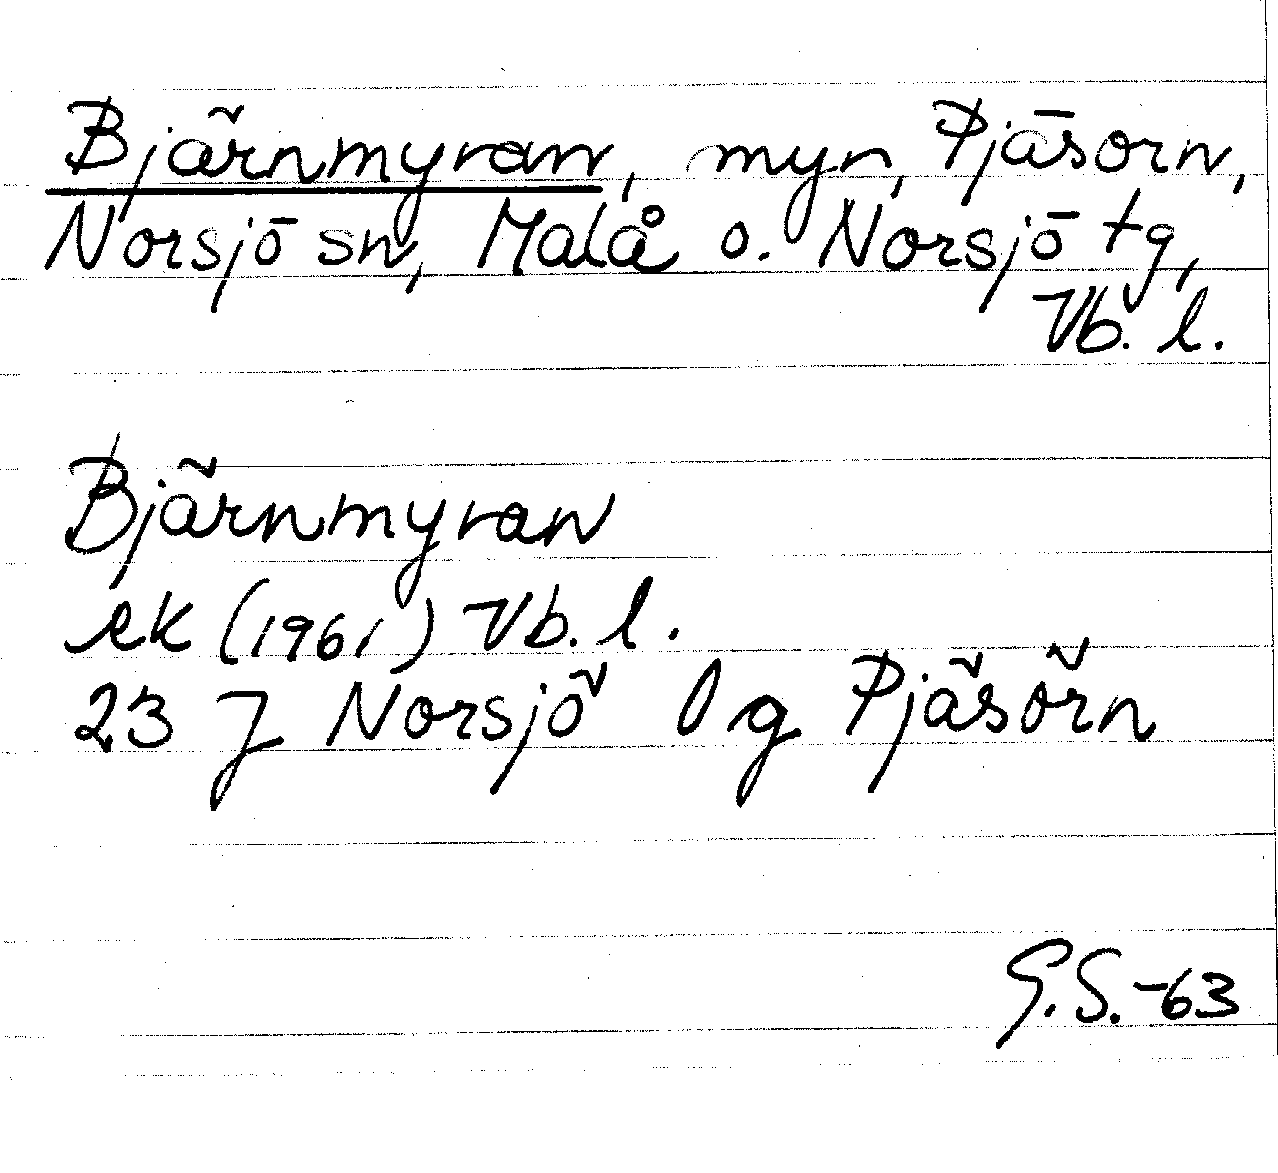 Bjärnmyran, myr, Pjäsörn,
Norsjö sn, Malå o. Norsjö tg,
Vb. l.
Bjärnmyran
ek (1961) Vb. l.
23 J Norsjö lg Pjäsörn
G.S.-63